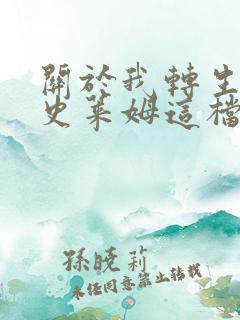 關於我轉生
史萊姆這檔
孫曉莉
未經同意禁止轉載